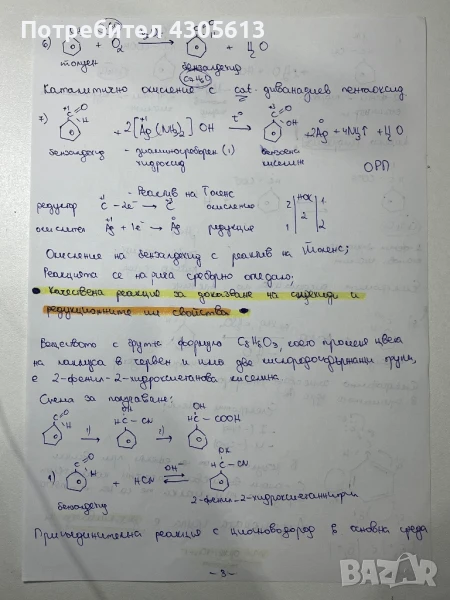 Потребител 4305613
6) + O₂ → + H₂O
толуен бензалдехид
C₇H₆O
Каталитично окисление с cat. диванадиев пентаоксид.
7) + 2[Ag(NH₃)₂]OH →t° + 2Ag + 4NH₃↑ + H₂O
бензалдехид - диаминосребърен (1) хидроксид бензоена киселина
ОРП
- Реактив на Толенс
редуктор C⁺¹ - 2e⁻ → C⁺³ окисление 2 | НОК | 1
окислител Ag⁺¹ + 1e⁻ → Ag⁰ редукция 1 | 2 | 2
Окисление на бензалдехид с реактив на Толенс;
Реакцията се нарича сребърно огледало;
• Качествена реакция за доказване на алдехиди и
редукционните им свойства •
Веществото с бруто формула C₈H₈O₃, което променя цвета
на лакмуса в червен и има две кислородсъдържащи групи,
е 2-фенил-2-хидроксиетанова киселина
Схема за получаване:
C O H 1) → OH HC-CN 2) → OH HC-COOH
1) C O H + HCN OH⁻ → OH HC-CN
бензалдехид 2-фенил-2-хидроксиетаннитрил
Присъединителна реакция с циановодород в основна среда
-3-
BAZAR